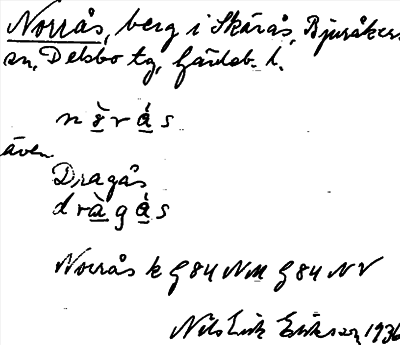 Norrås, berg i Skärås, Bjuråkers
sn, Delsbo tg, Gävleb. l.
n ò r ǻ s
även
Dragås
d r à g ǻ s
Norrås k G84 NM G84 NV
Nils Erik Eriksson 1936